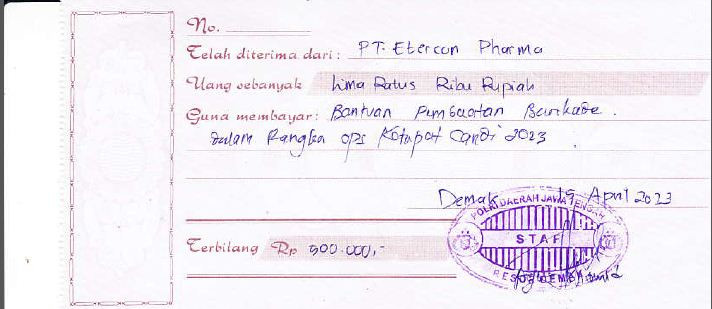 No.
Telah diterima dari: PT. Etercon Pharma
Uang sebanyak Lima Ratus Ribu Rupiah
Guna membayar: Bantuan Pembuatan Barikade.
dalam Rangka ops Ketupat Candi 2023
Demak 19 April 2023
POLRI DAERAH JAWA TENGAH
STAF
RESOR DEMAK
Terbilang Rp 500.000,-